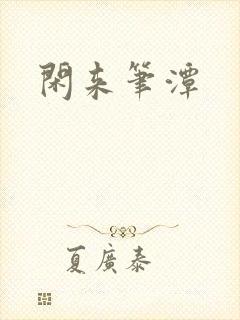 閑来筆潭
夏廣泰